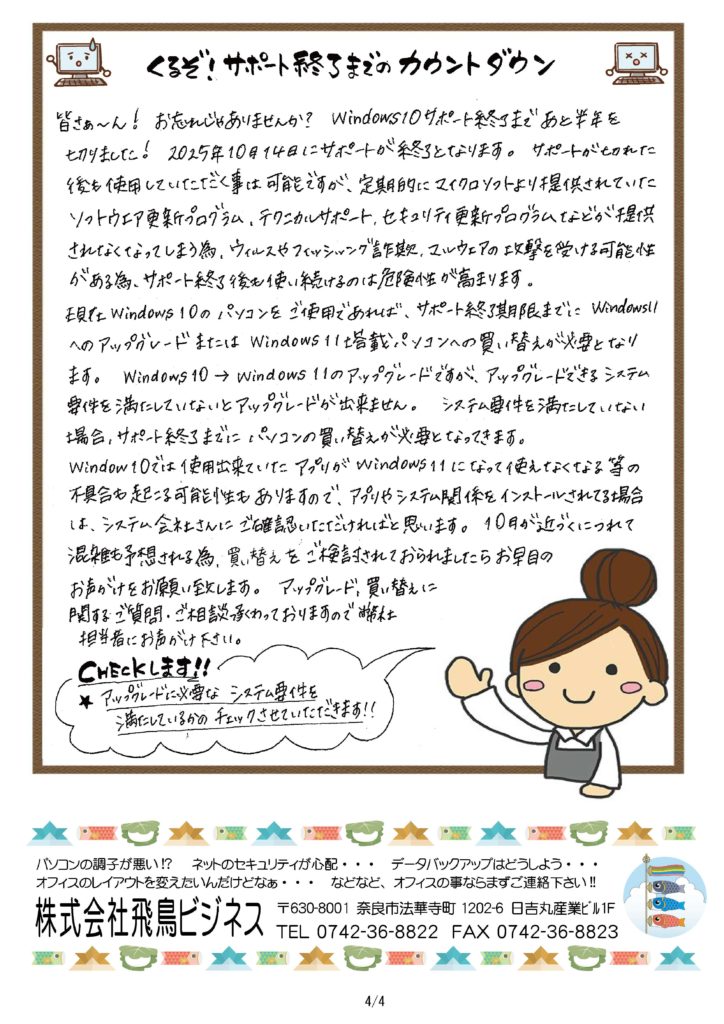 くるぞ!サポート終了までのカウントダウン
皆さぁ〜ん! お忘れじゃありませんか? Windows10サポート終了まであと半年を
切りました! 2025年10月14日にサポートが終了となります。 サポートが切れた
後も使用していただく事は可能ですが、定期的にマイクロソフトより提供されていた
ソフトウエア更新プログラム、テクニカルサポート、セキュリティ更新プログラムなどが提供
されなくなってしまう為、ウィルスやフィッシッング詐欺、マルウェアの攻撃を受ける可能性
がある為、サポート終了後も使い続けるのは危険性が高まります。
現在Windows10のパソコンをご使用であれば、サポート終了期限までに Windows11
へのアップグレードまたは Windows11搭載パソコンへの買い替えが必要となり
ます。 Windows10→Windows11のアップグレードですが、アップグレードできるシステム
要件を満たしていないとアップグレードが出来ません。 システム要件を満たしていない
場合、サポート終了までにパソコンの買い替えが必要となってきます。
Window10では使用出来ていたアプリがWindows11になって使えなくなる等の
不具合も起こる可能性もありますので、アプリやシステム関係をインストールされてる場合
は、システム会社さんにご確認いただければと思います。 10月が近づくにつれて
混雑も予想される為、買い替えをご検討されておられましたらお早目の
お声がけをお願い致します。 アップグレード、買い替えに
関するご質問・ご相談承わっておりますので弊社
担当者にお声がけ下さい。
CHECKします!!
★ アップグレードに必要な システム要件を
満たしているかの チェックさせていただきます!!
パソコンの調子が悪い!? ネットのセキュリティが心配・・・ データバックアップはどうしよう・・・
オフィスのレイアウトを変えたいんだけどなぁ・・・ などなど、オフィスの事ならまずご連絡下さい!!
株式会社飛鳥ビジネス 〒630-8001 奈良市法華寺町 1202-6 日吉丸産業ビル1F
TEL 0742-36-8822 FAX 0742-36-8823
4/4